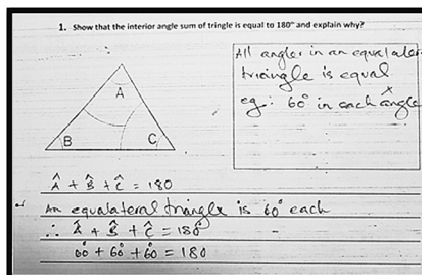 1. Show that the interior angle sum of tringle is equal to 180° and explain why?
All angles in an equalater
triangle is equal
eg: 60° in each angle
x
A
B
C
Â + B̂ + Ĉ = 180
An equalateral triangle is 60° each
∴ Â + B̂ + Ĉ = 180°
60° + 60° + 60° = 180